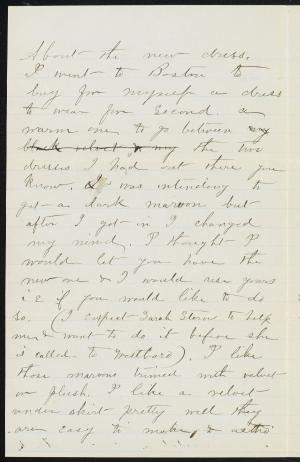 About the new dress.
I went to Boston to
buy for myself a dress
to wear for second. a
warm one to go between my
black velvet & my the two
dresses I had out there you
know. I was intending to
get a dark maroon but
after I got in I changed
my mind. I thought I
would let you have the
new one & I would use yours
i e if you would like to do
so. (I expect Sarah Stone to help
me & want to do it before she
is called to Westboro). I like
those maroons trimed with velvet
or plush. I like a velvet
under skirt pretty well they
are easy to make, &